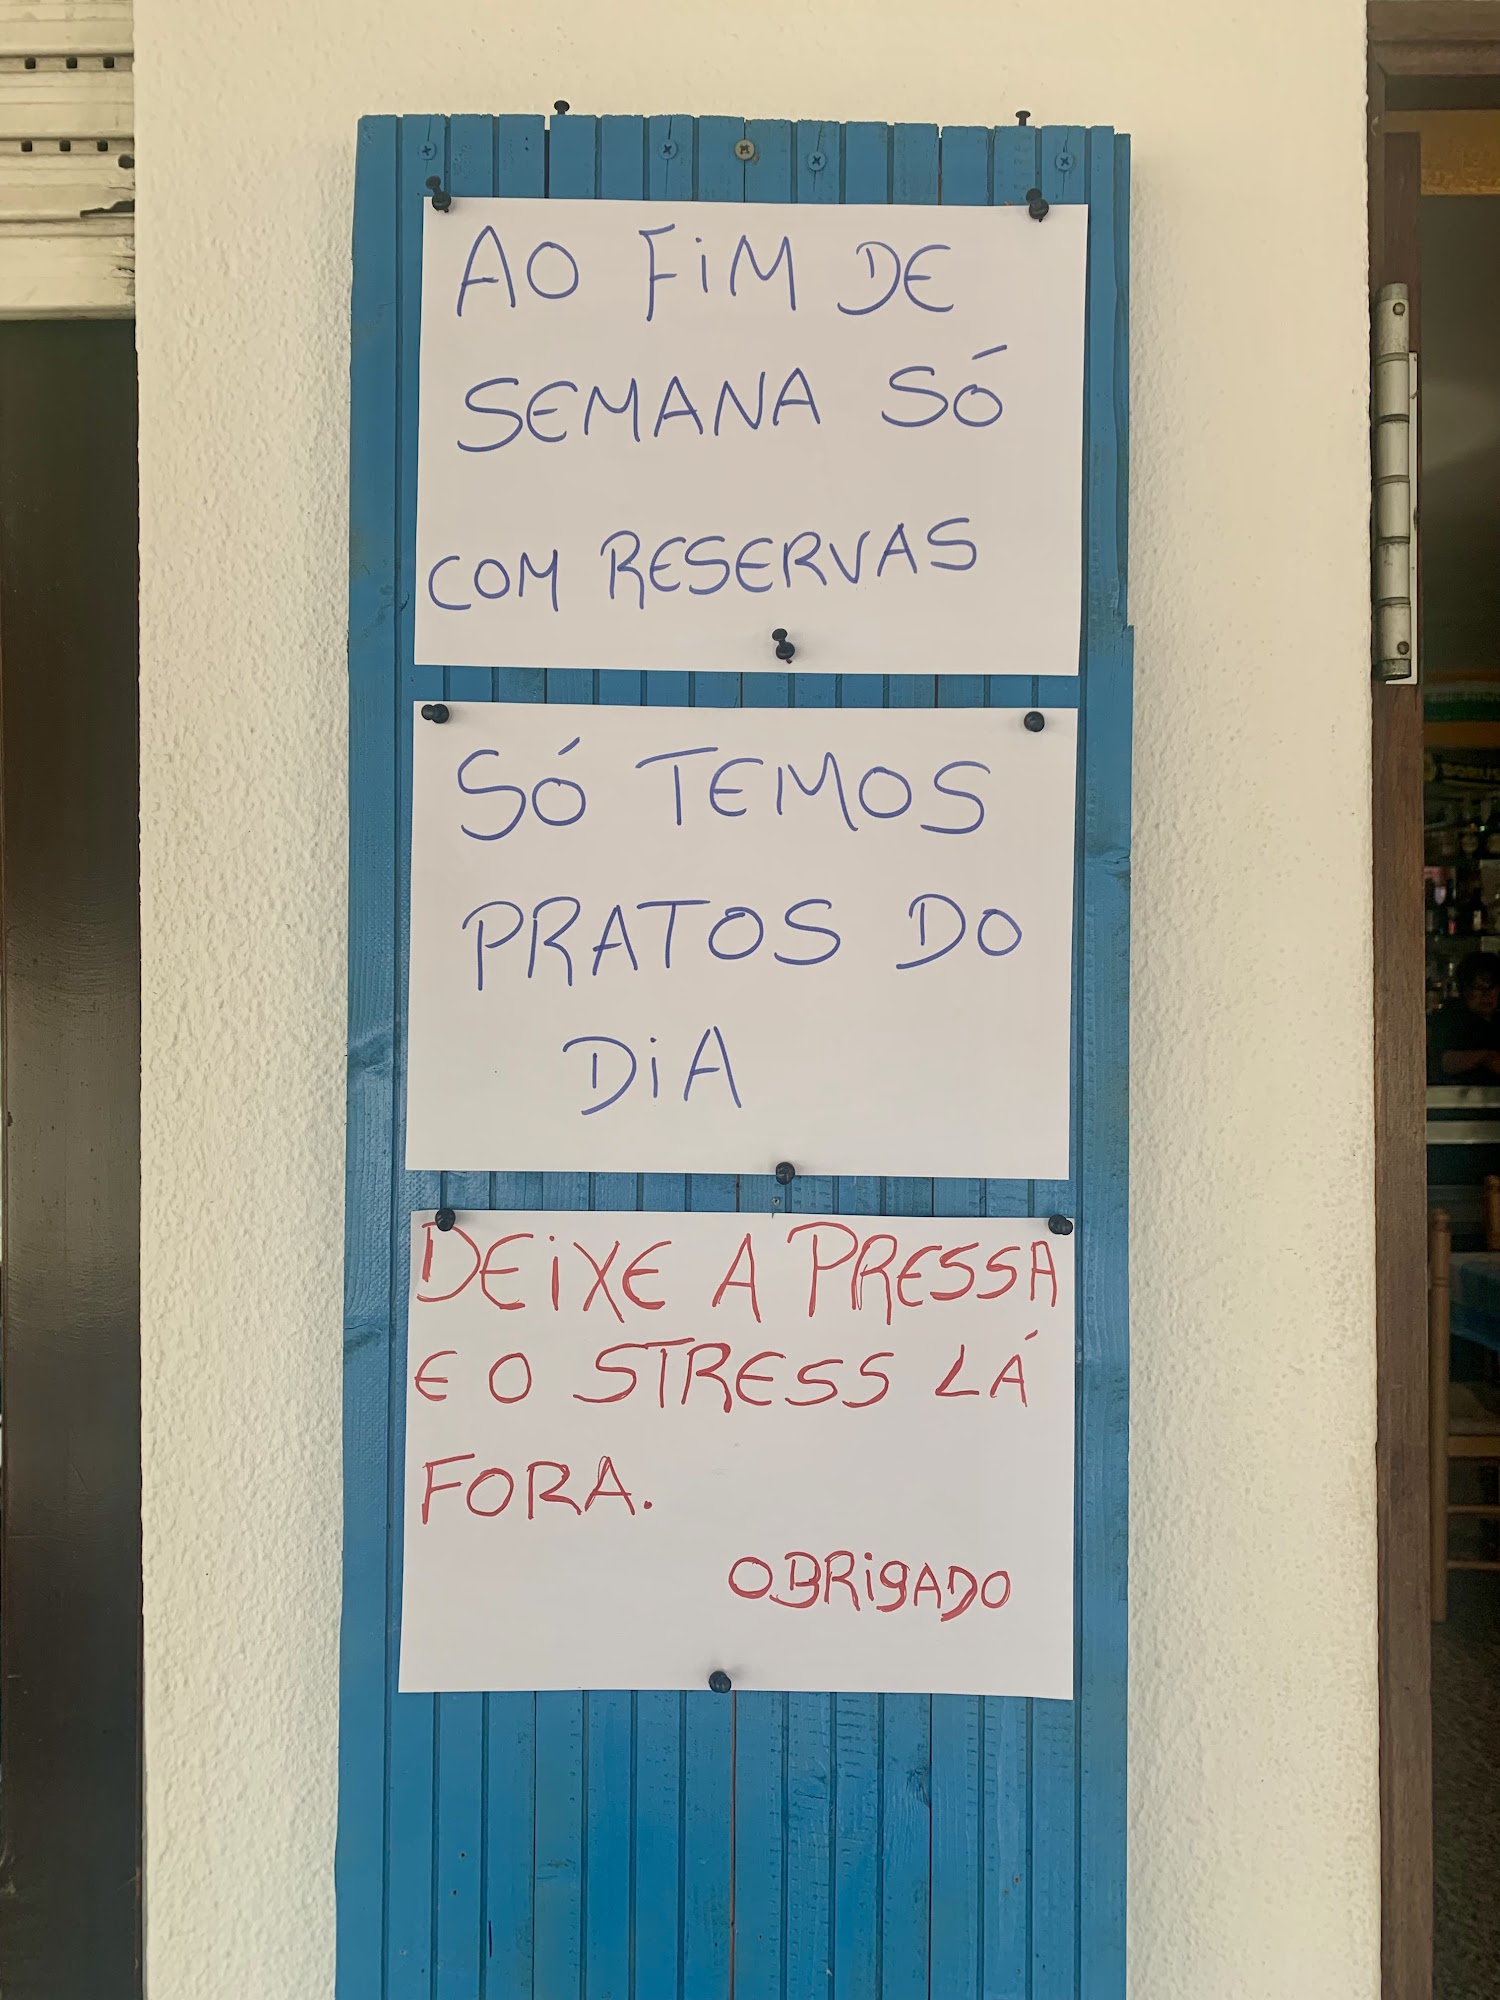 AO FiM DE
SEMANA SÓ
COM RESERVAS
SÓ TEMOS
PRATOS DO
DiA
DEiXE A PRESSA
E O STRESS LÁ
FORA.
OBRiGADO